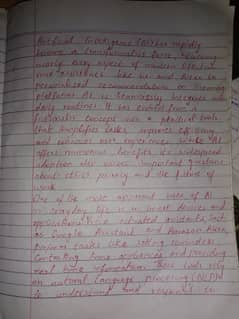 Artificial Intelligence (AI) has rapidly
become a transformative force, influencing
nearly every aspect of modern life. From
virtual assistants like Siri and Alexa to
personalized recommendations on streaming
platforms AI is seamlessly integrated into
daily routines. It has evolved from a
futuristic concept into a practical tool
that simplifies tasks, improves efficiency
and enhances user experience. While AI
offers numerous benefits its widespread
adoption also raises important questions
about ethics privacy and the future of
work
One of the most apparent uses of AI
in everyday life is in smart devices and
applications. Voice activated assistants, such
as Google Assistant and Amazon Alexa,
perform tasks like setting reminders
Controlling home appliances and providing
real time information. These tools rely
on natural language processing (NLP)
to understand and respond to